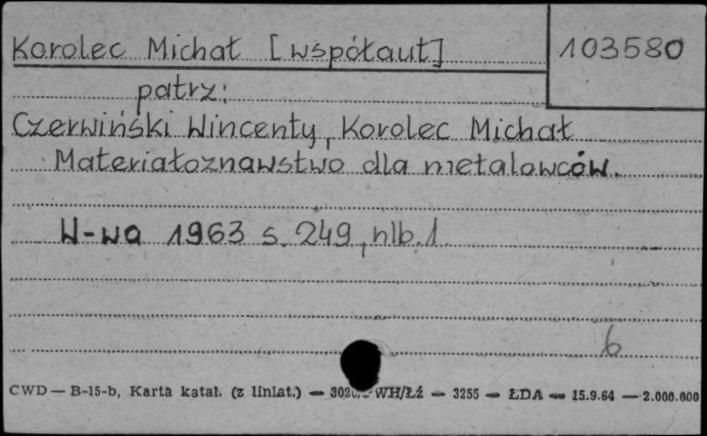 Korolec Michał [współaut] 103580
patrz:
Czerwiński Wincenty, Korolec Michał
Materiałoznawstwo dla metalowców.
W-wa 1963 s. 249, nlb. 1
6
CWD — B-15-b, Karta katal. (z liniat.) — WH/Łź — 3255 — ŁDA — 15.9.64 — 2.000.000